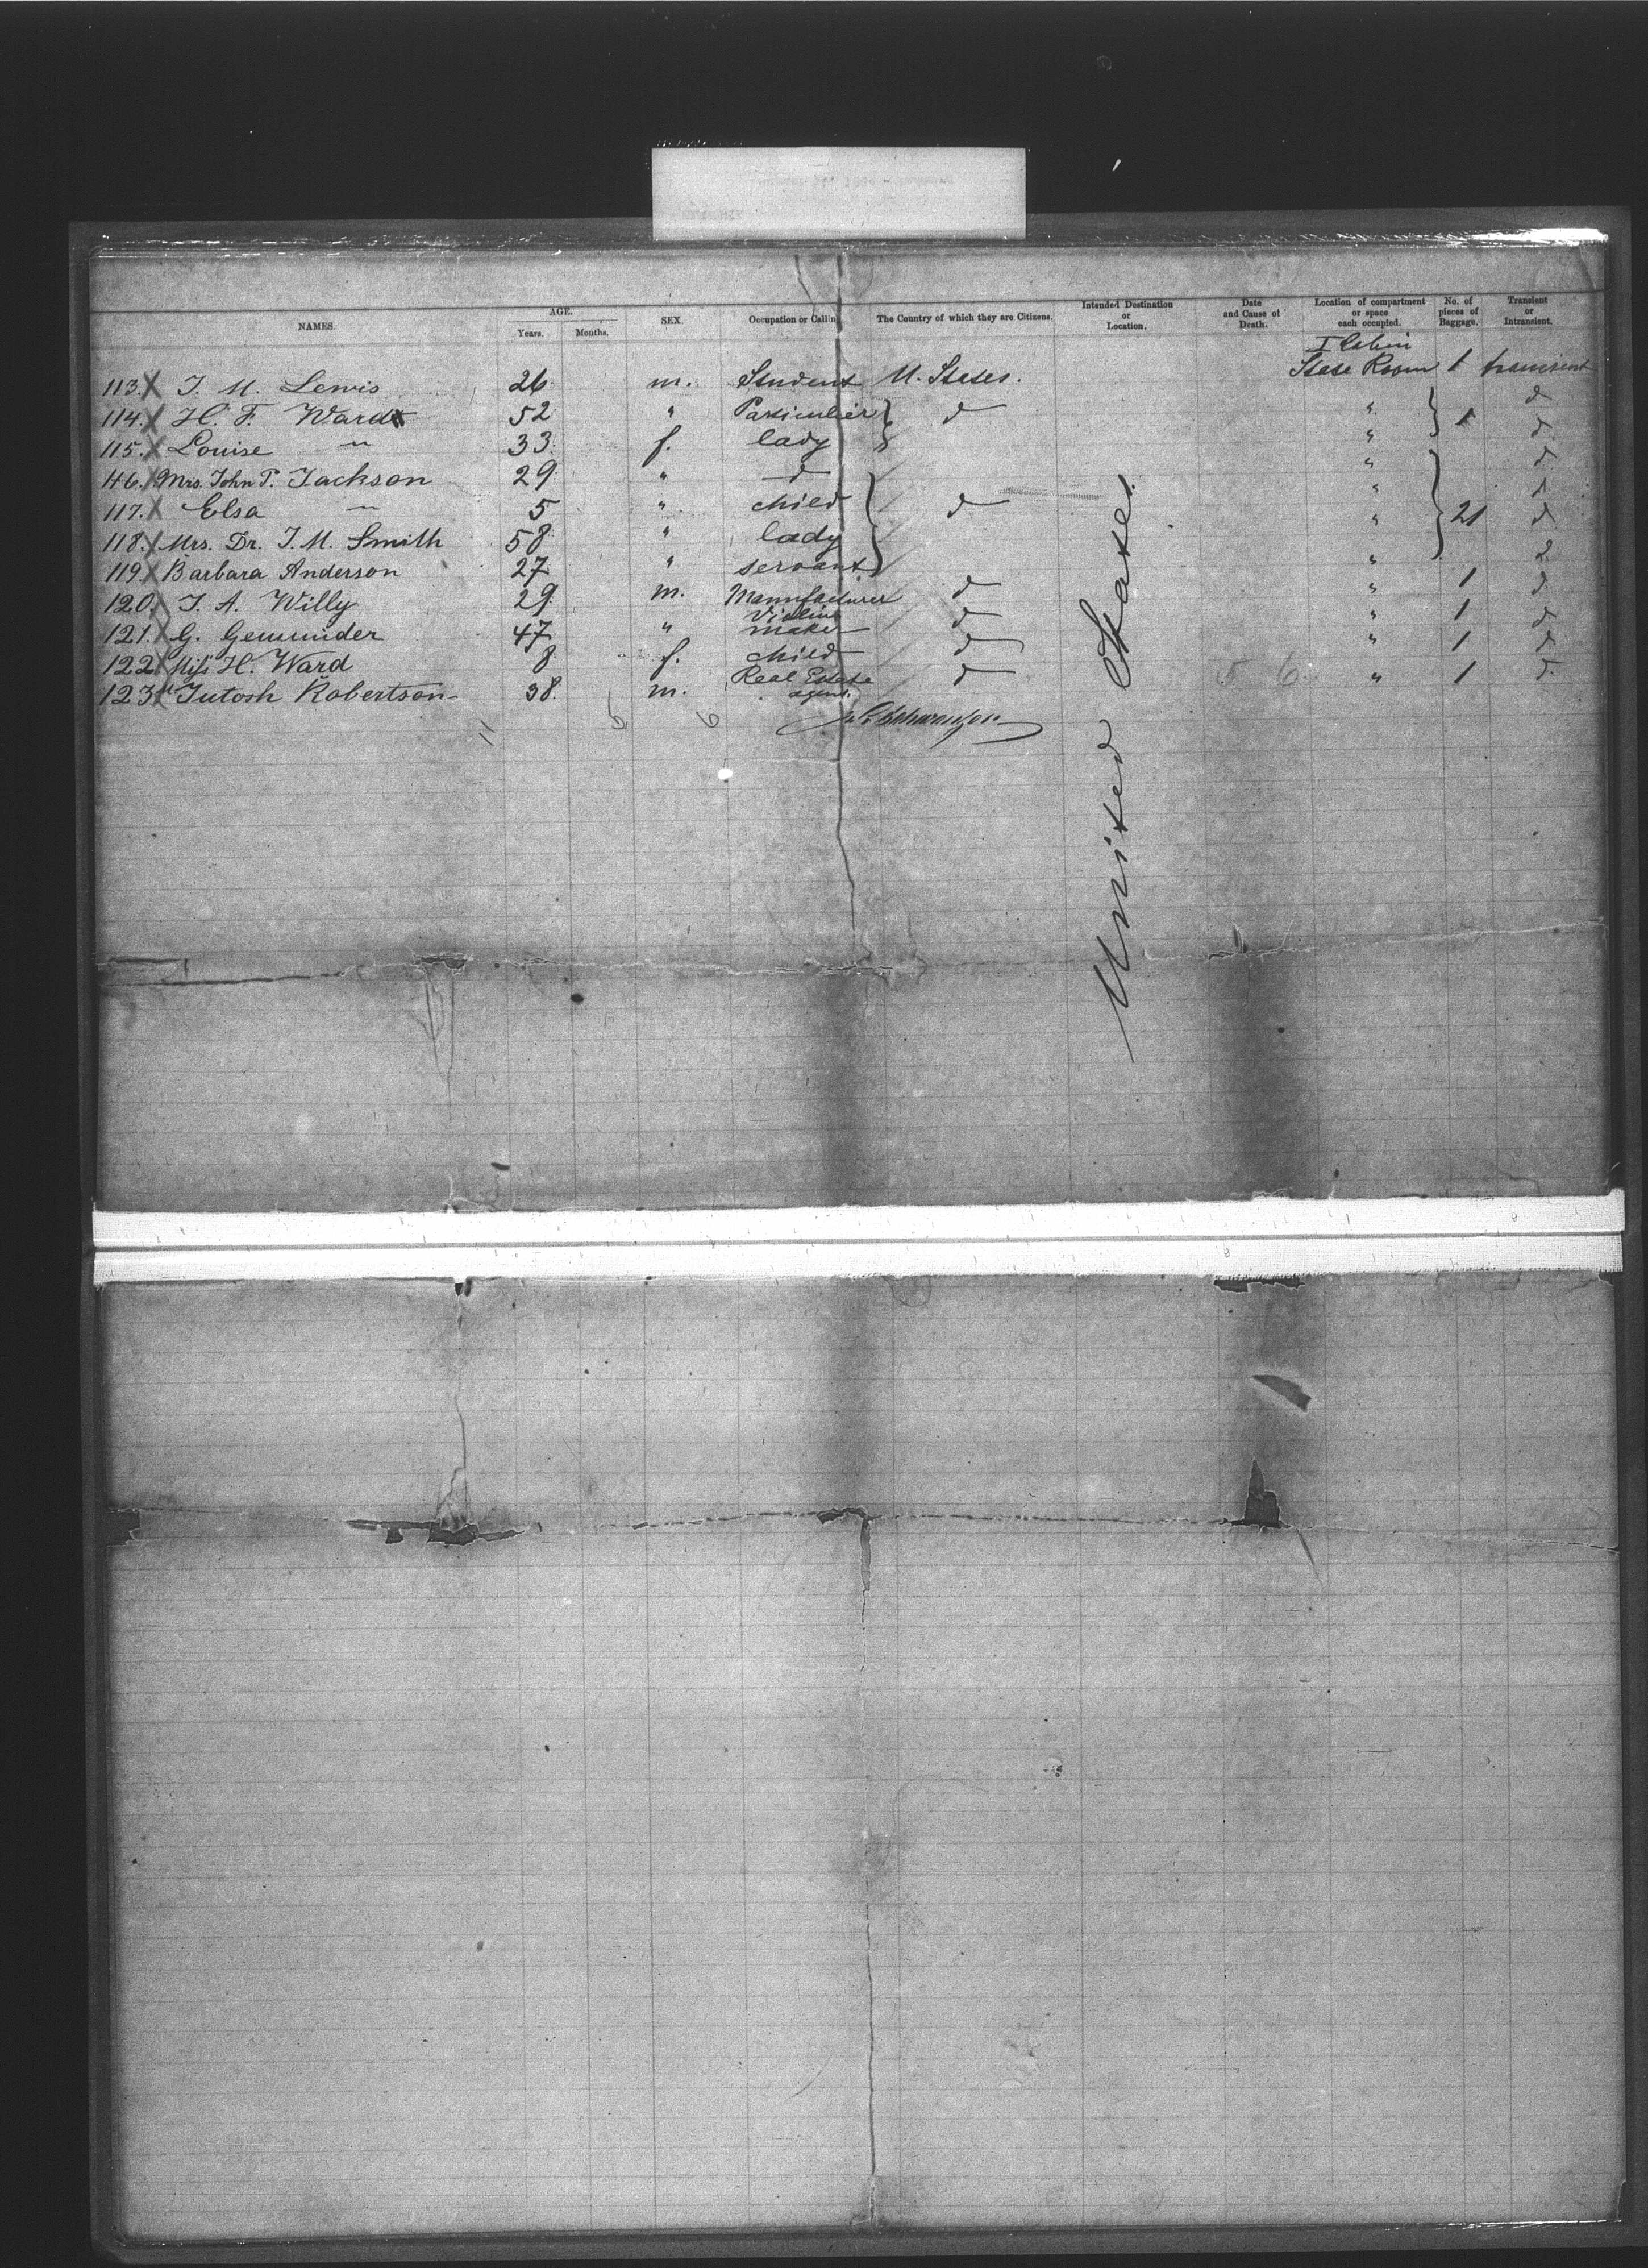 NAMES. AGE. Years. Months. SEX. Occupation or Callin The Country of which they are Citizens. Intended Destination or Location. Date and Cause of Death. Location of compartment or space each occupied. No. of pieces of Baggage. Transient or Intransient.
I Cabin
113. X J. M. Lewis 26 m. Student U. States. State Room 1 transient
114. X H. F. Ward 52 " Particulier d " 1 d
115. X Louise " 33 f. lady " d
116. X Mrs. John P. Jackson 29 " d " d
117. X Elsa " 5 " child d " d
118. X Mrs. Dr. J. M. Smith 58 " lady " 21 d
119. X Barbara Anderson 27 " servant " d
120. X J. A. Willy 29 m. Manufacturer d " 1 d
121. X G. Gemunder 47 " Violin maker d " 1 d
122. X Miss H. Ward 8 f. child d " 1 d
123. Tutosh Robertson 38 m. Real Estate agent. d " 1 d
11 5 6
5 6
United States.